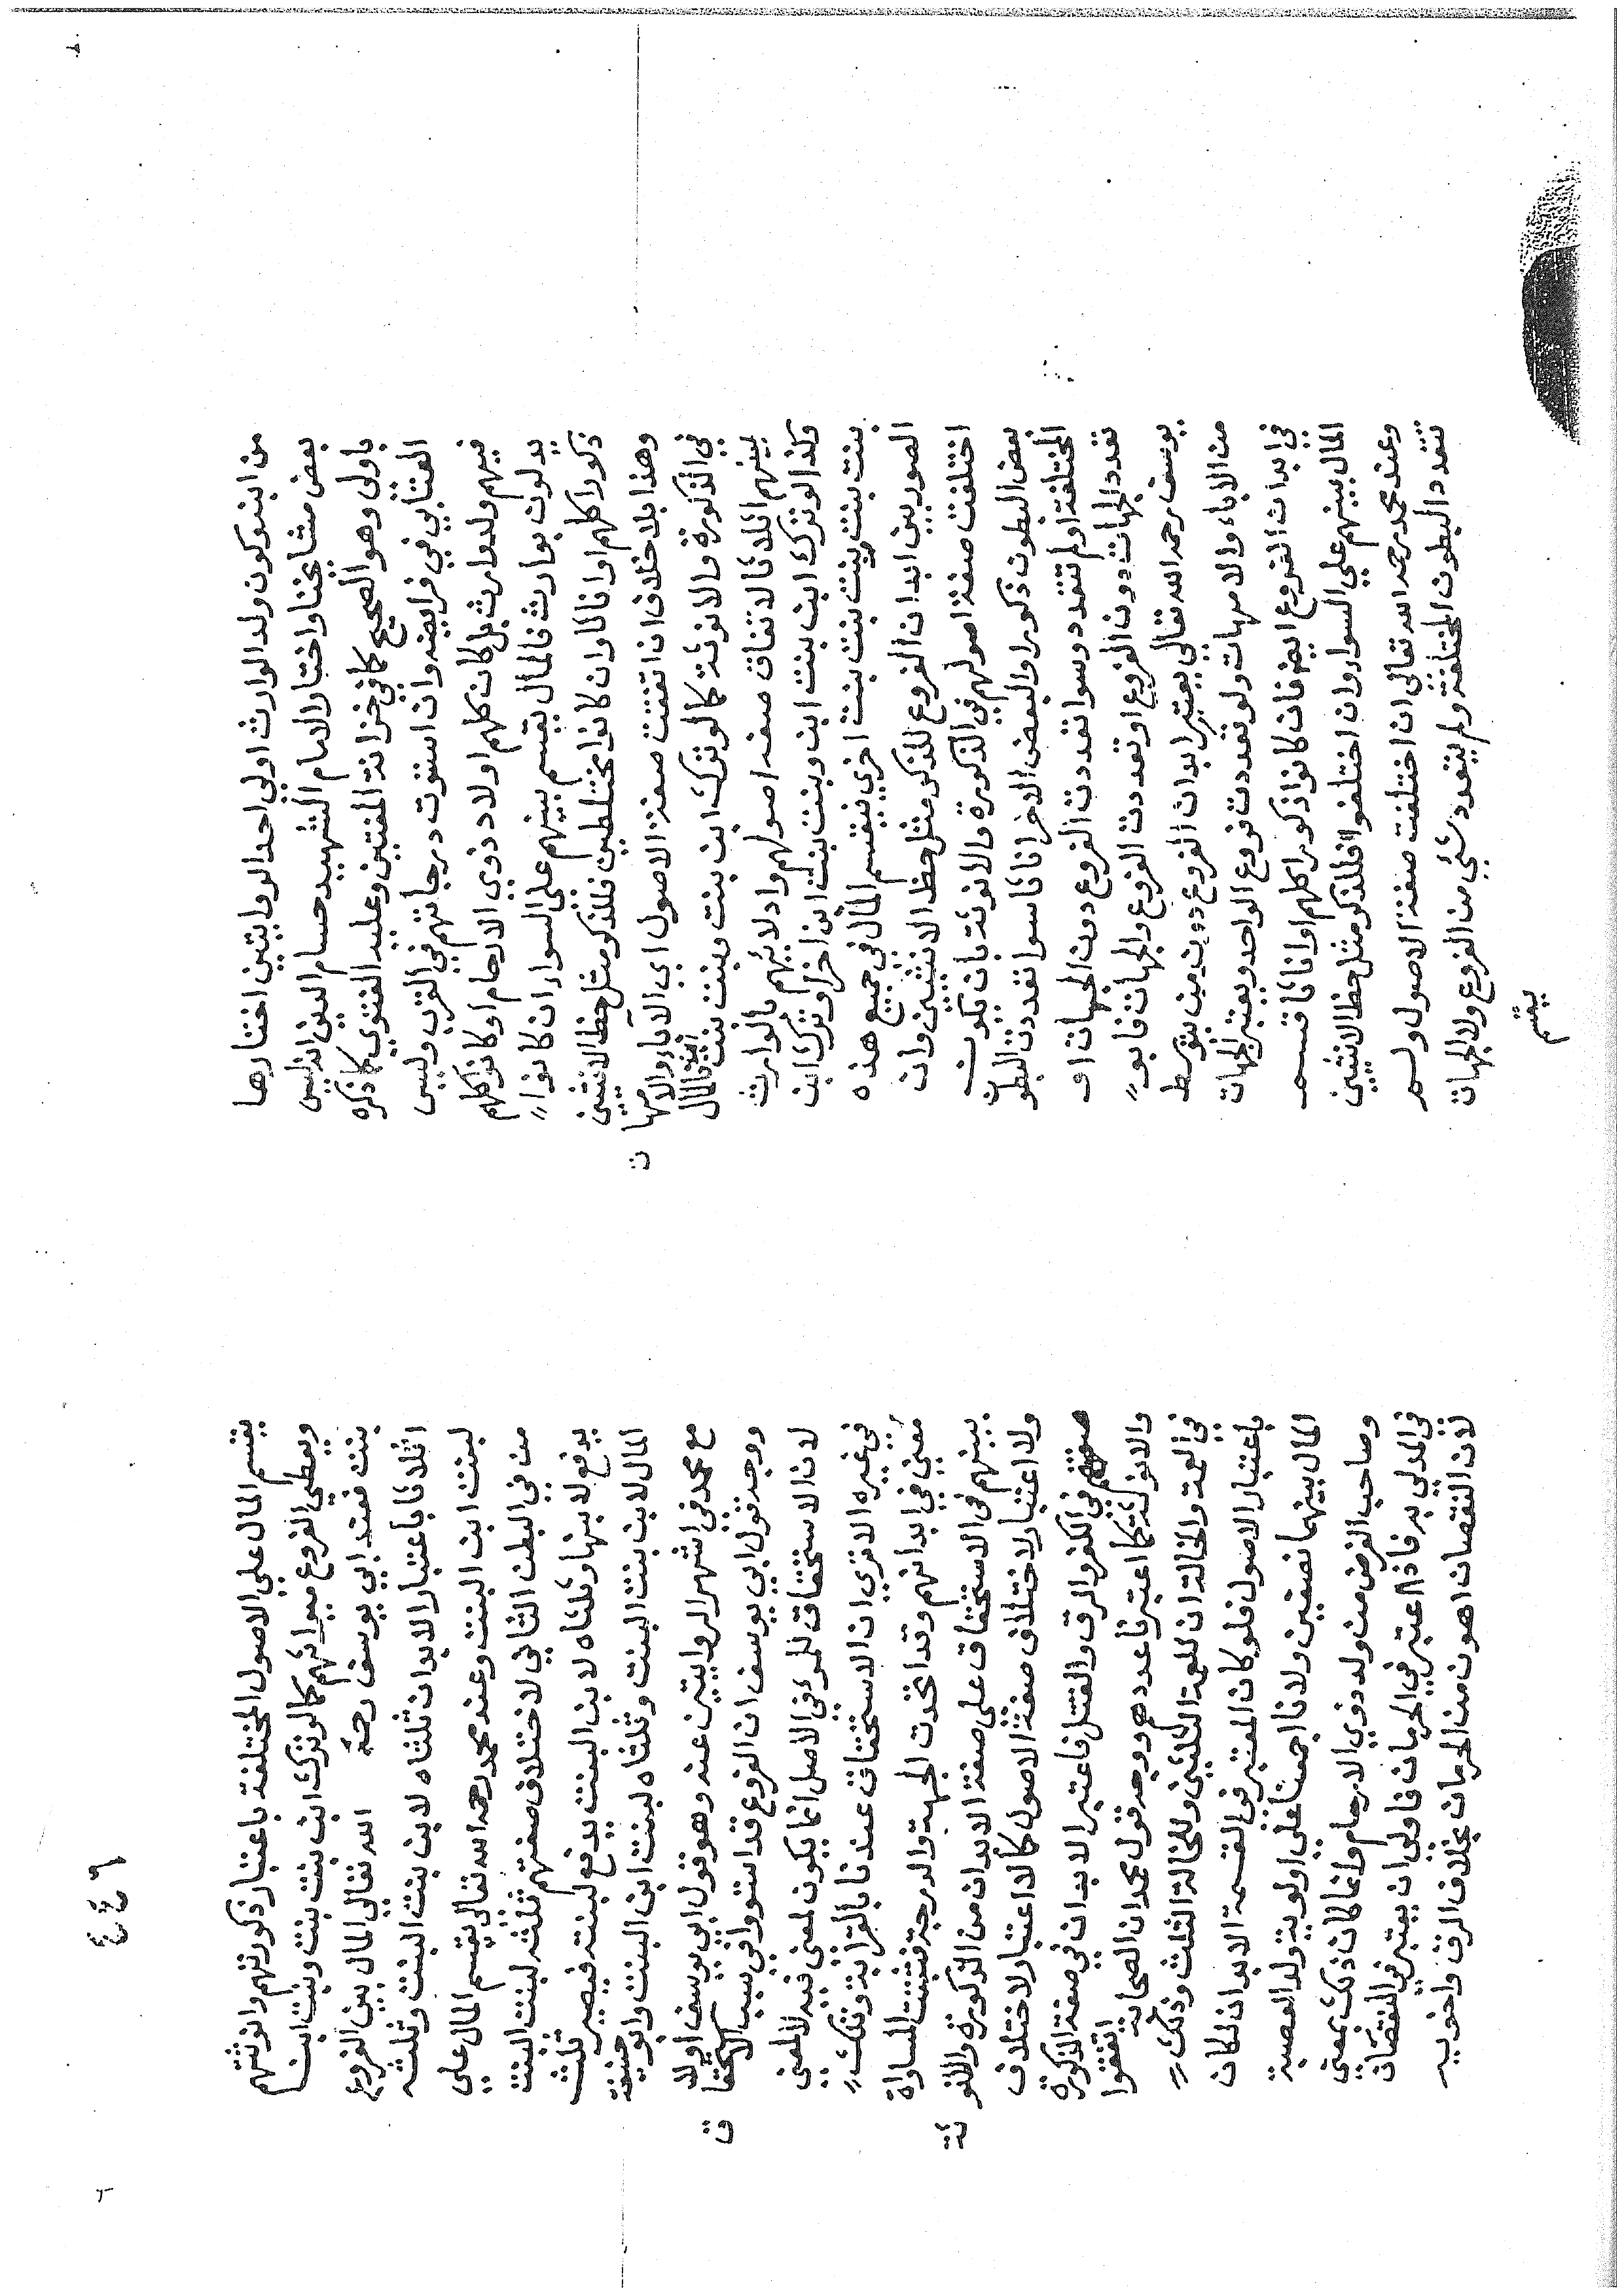 من ابنه وكون ولد الوارث اولي احد الروايتين اختارها
بعض مشايخنا واختار الامام الشهيد حسام الدين انه ليس
باولي وهو الصحيح كما في خزانة المفتين وعليه الفتوي كما ذكره
العتابي في فرايضه وان استوت درجاتهم في القرب وليس
فيهم ولد وارث بل كان كلهم اولاد ذوي الارحام او كانو كلهم
يدلون بوارث فالمال يقسم بينهم علي السواء ان كانوا
ذكورا كلهم او اناثا وان كانوا مختلطين فللذكر مثل حظ الانثيين
وهذا بلا خلاف ان اتفقت صفة الاصول اي الآباء والامهات
في الذكورة والانوثة كما لو ترك ابن بنت وبنت بنت فالمال
بينهم اثلاثا لاتفاق صفه اصولهم وادلائهم بالوارث
وكذا لو ترك ابن بنت ابن وبنت بنت ابن اخر او ترك ابن
بنت بنت وبنت بنت بنت اخري فيقسم المال في جميع هذه
الصور بين ابدان الفروع للذكر مثل حظ الانثيين وان
اختلفت صفة اصولهم في الذكورة والانوثة بان يكون
بعض البطون ذكورا والبعض الاخر اناثا سوا تعددت البطون
المختلفة او لم تتعدد وسوا تعددت الفروع دون الجهات او
تعدد الجهات دون الفروع او تعددت الفروع والجهات فابو
يوسف رحمه الله تعالي يعتبر ابدان الفروع دون من يتوسط
من الاباء والامهات ولو تعددت فروع الواحد ويعتبر الجهات
في ابدان الفروع ايضا فان كانوا ذكورا كلهم او اناثا قسم
المال بينهم علي السواء وان اختلفوا فللذكر مثل حظ الانثيين
وعند محمد رحمه الله تعالي ان اختلفت صفة الاصول ولم
تتعدد البطون المختلفة ولم يتعدد شيء من الفروع ولا الجهات
يقسم
٤٤٩
يقسم المال علي الاصول المختلفة باعتبار ذكورتهم وانوثتهم
ويعطي الفروع ميراثهم كما لو ترك ابن بنت بنت وبنت ابن
بنت فعند ابي يوسف رحمه الله تعالي المال بين الفروع
اثلاثا باعتبار الابدان ثلثاه لابن بنت البنت وثلثه
لبنت ابن البنت وعند محمد رحمه الله تعالي يقسم المال علي
من في البطن الثاني لاختلاف صفتهم ثلثه لبنت البنت
يدفع لابنها وثلثاه لابن البنت يدفع لبنته فيصير ثلث
المال لابن بنت البنت وثلثاه لبنت ابن البنت وابو حنيفة
مع محمد في اشهر الروايتين عنه وهو قول ابي يوسف اولا
ووجه قول ابي يوسف ان الفروع قد استووا في سبب الاستحقاق
لان الاستحقاق للمرء في الاصل انما يكون لمعني فيه لا لمعني
في غيره الا تري ان الاستحقاق عندنا بالقرابة وتلك
معني في ابدانهم وقد اتحدت الجهة والدرجة فتثبت المساواة
بينهم في الاستحقاق علي صفة الابدان من الذكورة والانوثة
ولا اعتبار لاختلاف صفة الاصول كما لا اعتبار لاختلاف
صفتهم في الكفر والرق والقتل فاعتبر الابدان في صفة الذكورة
والانوثة كما اعتبرنا عددهم ووجه قول محمد ان الصحابة اتفقوا
في العمة والخالة ان للعمة الثلثين وللخالة الثلث وذلك
باعتبار الاصول فلو كان المعتبر في القسمة الابدان لكان
المال بينهما نصفين ولانا اجمعنا علي اولوية ولد العصبة
وصاحب الفرض من ولد ذوي الارحام وانما كان ذلك بمعني
في المدلي به فاذا اعتبر في الحرمان فاولي ان يعتبر في النقصان
لان النقصان اهون من الحرمان بخلاف الرق واخويه